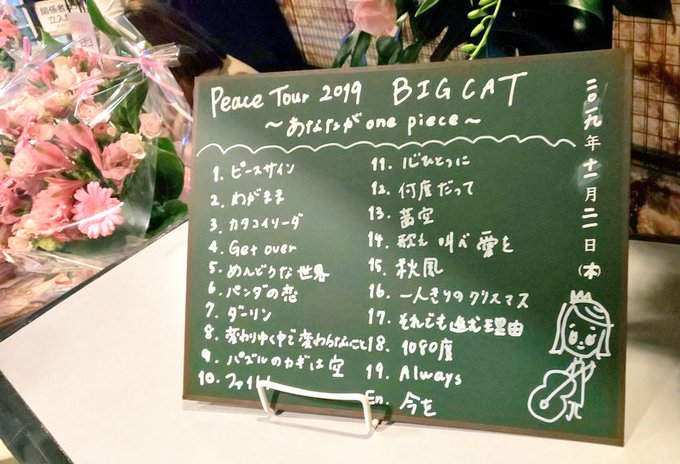 関係者
立入
Peace Tour 2019 BIG CAT
～あなたが one piece～
1. ピースサイン
2. わがまま
3. カタコイリーダ
4. Get over
5. めんどうな世界
6. パンダの恋
7. ダーリン
8. 変わりゆく中で変わらないこと
9. パズルのカギは空
10. ファイト
11. 心ひとつに
12. 何度だって
13. 茜空
14. 歌え 叫べ 愛を
15. 秋風
16. 一人きりのクリスマス
17. それでも進む理由
18. 1090度
19. Always
En. 今を
二〇一九年十一月二一日(木)